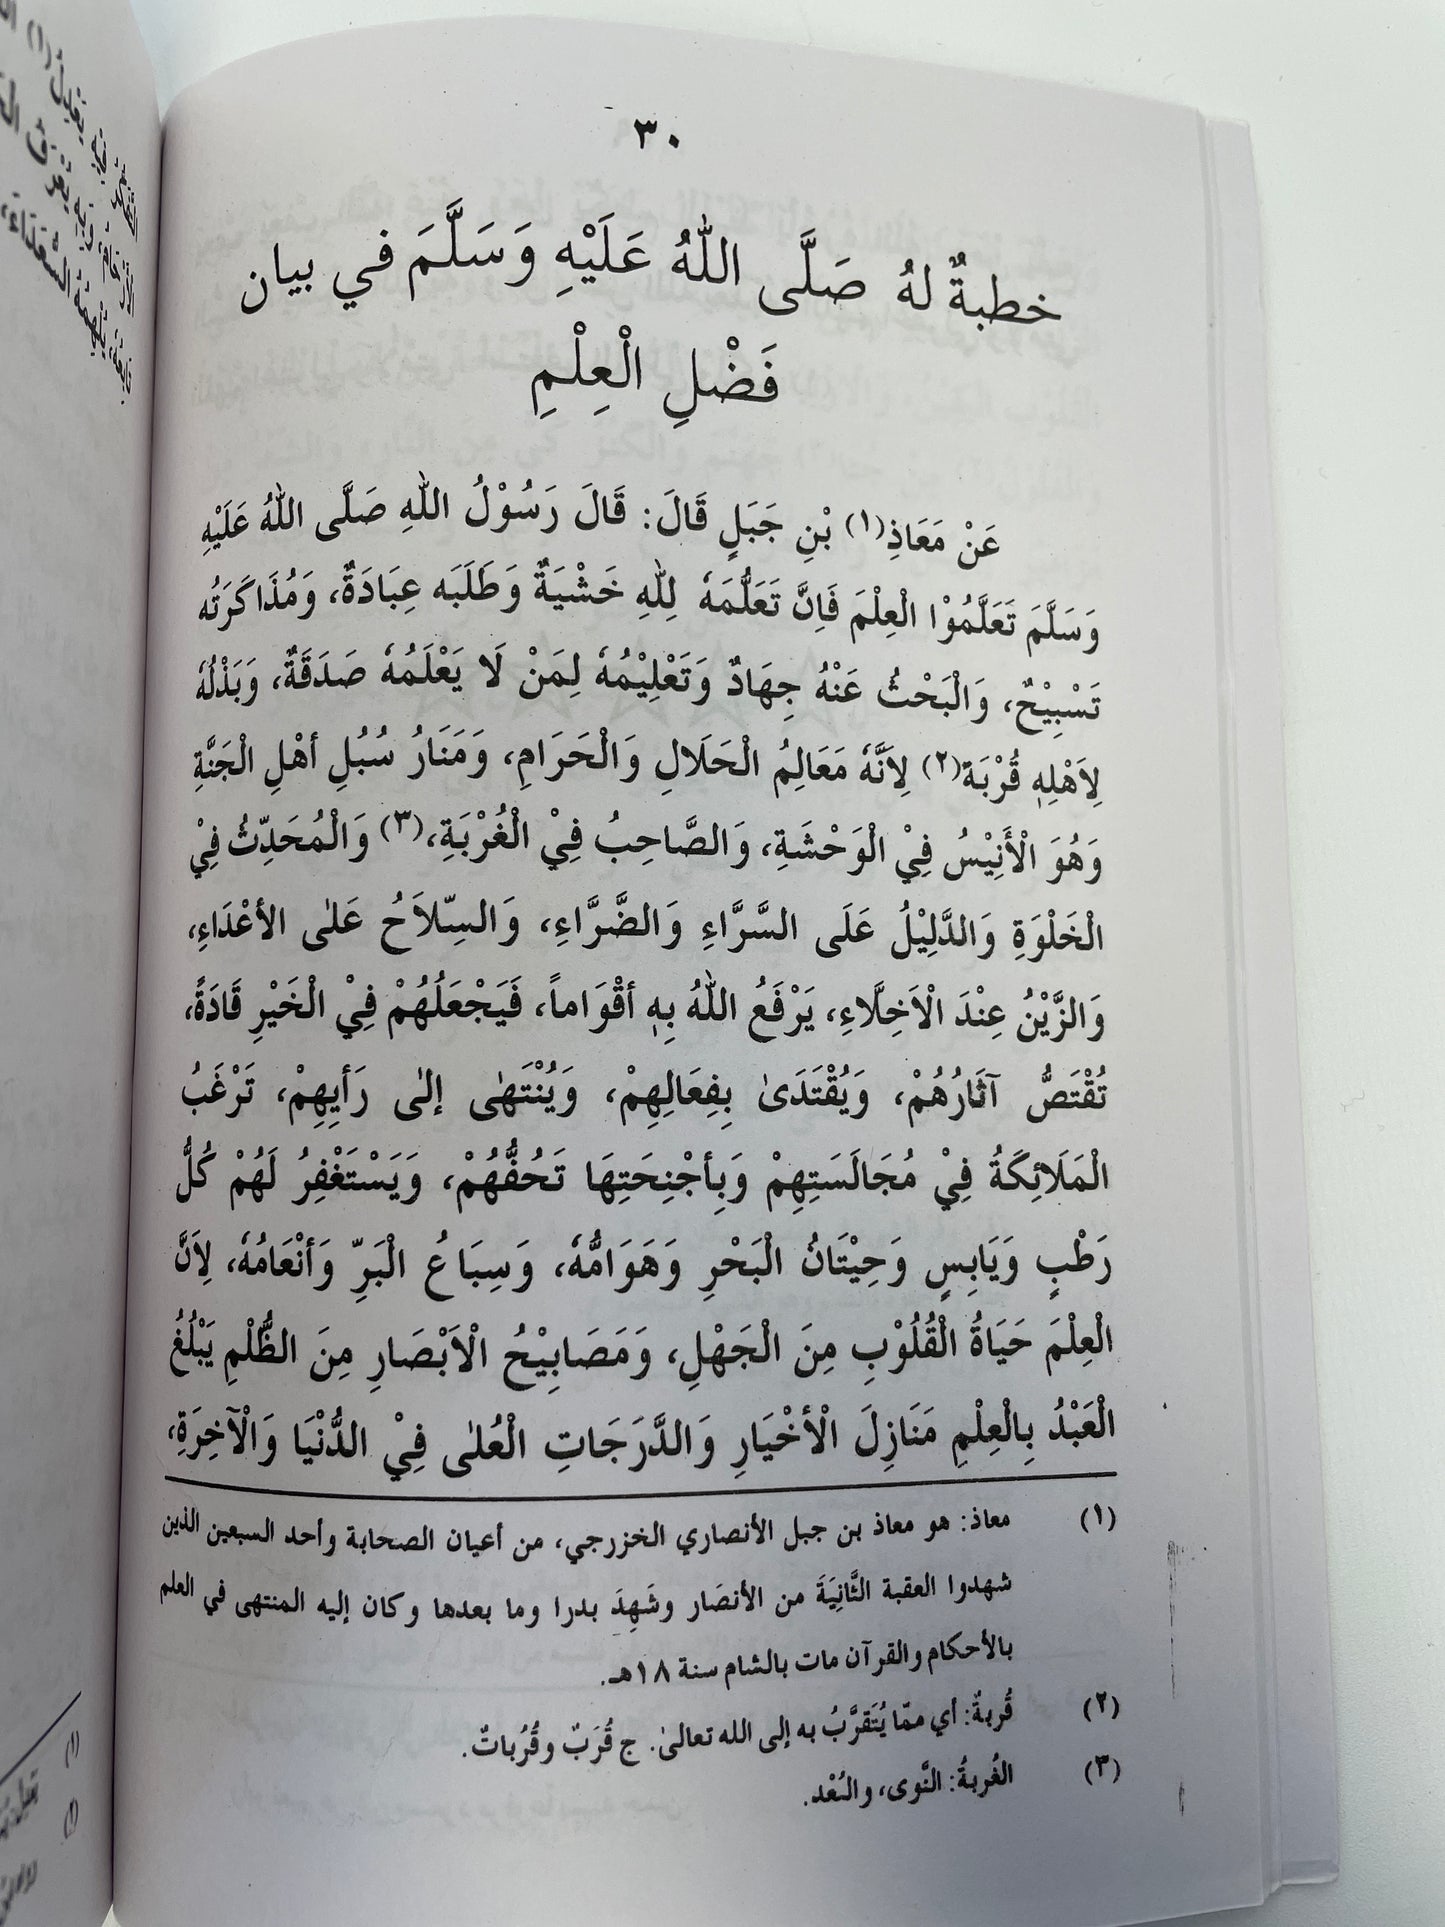 ٣٠
خطبةٌ لهُ صَلَّى اللّٰهُ عَلَيْهِ وَسَلَّمَ في بيان
فَضْلِ الْعِلْمِ
عَنْ مَعَاذِ(١) بْنِ جَبَلٍ قَالَ: قَالَ رَسُوْلُ اللّٰهِ صَلَّى اللّٰهُ عَلَيْهِ
وَسَلَّمَ تَعَلَّمُوْا الْعِلْمَ فَاِنَّ تَعَلُّمَهٗ لِلّٰهِ خَشْيَةٌ وَطَلَبَه عِبَادَةٌ، وَمُذَاكَرَتُه
تَسْبِيْحٌ، وَالْبَحْثُ عَنْهُ جِهَادٌ وَتَعْلِيْمُهٗ لِمَنْ لَا يَعْلَمُهٗ صَدَقَةٌ، وَبَذْلُهٗ
لِاَهْلِهٖ قُرْبَة(٢) لِاَنَّهٗ مَعَالِمُ الْحَلَالِ وَالْحَرَامِ، وَمَنَارُ سُبُلِ أهْلِ الْجَنَّةِ
وَهُوَ الْأَنِيْسُ فِيْ الْوَحْشَةِ، وَالصَّاحِبُ فِيْ الْغُرْبَةِ،(٣) وَالْمُحَدِّثُ فِيْ
الْخَلْوَةِ وَالدَّلِيْلُ عَلَى السَّرَّاءِ وَالضَّرَّاءِ، وَالسِّلاَحُ عَلٰى الأعْدَاءِ،
وَالزَّيْنُ عِنْدَ الْاَخِلَّاءِ، يَرْفَعُ اللّٰهُ بِهٖ أقْوَاماً، فَيَجْعَلُهُمْ فِيْ الْخَيْرِ قَادَةً،
تُقْتَصُّ آثَارُهُمْ، وَيُقْتَدَىٰ بِفِعَالِهِمْ، وَيُنْتَهٰى إلىٰ رَأيِهِمْ، تَرْغَبُ
الْمَلَائِكَةُ فِيْ مُجَالَسَتِهِمْ وَبِأجْنِحَتِهَا تَحُفُّهُمْ، وَيَسْتَغْفِرُ لَهُمْ كُلُّ
رَطْبٍ وَيَابِسٍ وَحِيْتَانُ الْبَحْرِ وَهَوَامُّهٗ، وَسِبَاعُ الْبَرِّ وَأنْعَامُهٗ، لِاَنَّ
الْعِلْمَ حَيَاةُ الْقُلُوْبِ مِنَ الْجَهْلِ، وَمَصَابِيْحُ الْاَبْصَارِ مِنَ الظُّلْمِ يَبْلُغُ
الْعَبْدُ بِالْعِلْمِ مَنَازِلَ الْأخْيَارِ وَالدَّرَجَاتِ الْعُلٰى فِيْ الدُّنْيَا وَالْآخِرَةِ،
(١) معاذ: هو معاذ بن جبل الأنصاري الخزرجي، من أعيان الصحابة وأحد السبعين الذين
شهدوا العقبة الثَّانِيَةَ من الأنصَار وشَهِدَ بدرا وما بعدها وكان إليه المنتهى في العلم
بالأحكام والقرآن مات بالشام سنة ١٨هـ.
(٢) قُربةٌ: أي ممّا يُتَقرَّبُ به إلى الله تعالىٰ. ج قُرَبٌ وقُرُباتٌ.
(٣) الغُربةُ: النَّوى، والبُعْد.